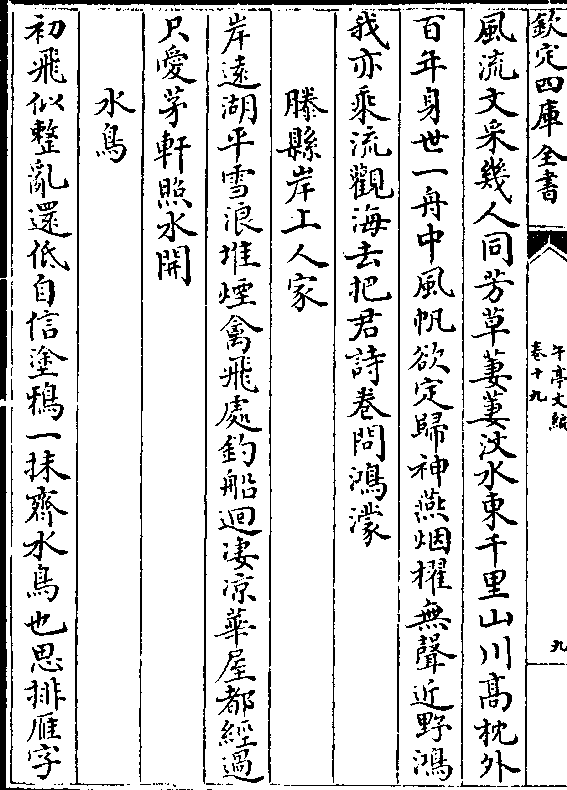 欽定四庫全書
午亭文編
卷十九
九
風流文采幾人同芳草萋萋汶水東千里山川髙枕外
百年身世一舟中風帆欲定歸神燕烟櫂無聲近野鴻
我亦乘流觀海去把君詩卷問鴻濛
滕縣岸上人家
岸遠湖平雪浪堆煙禽飛處釣船迴凄凉華屋都經過
只愛茅軒照水開
水鳥
初飛似整亂還低自信塗鴉一抹齊水鳥也思排雁字